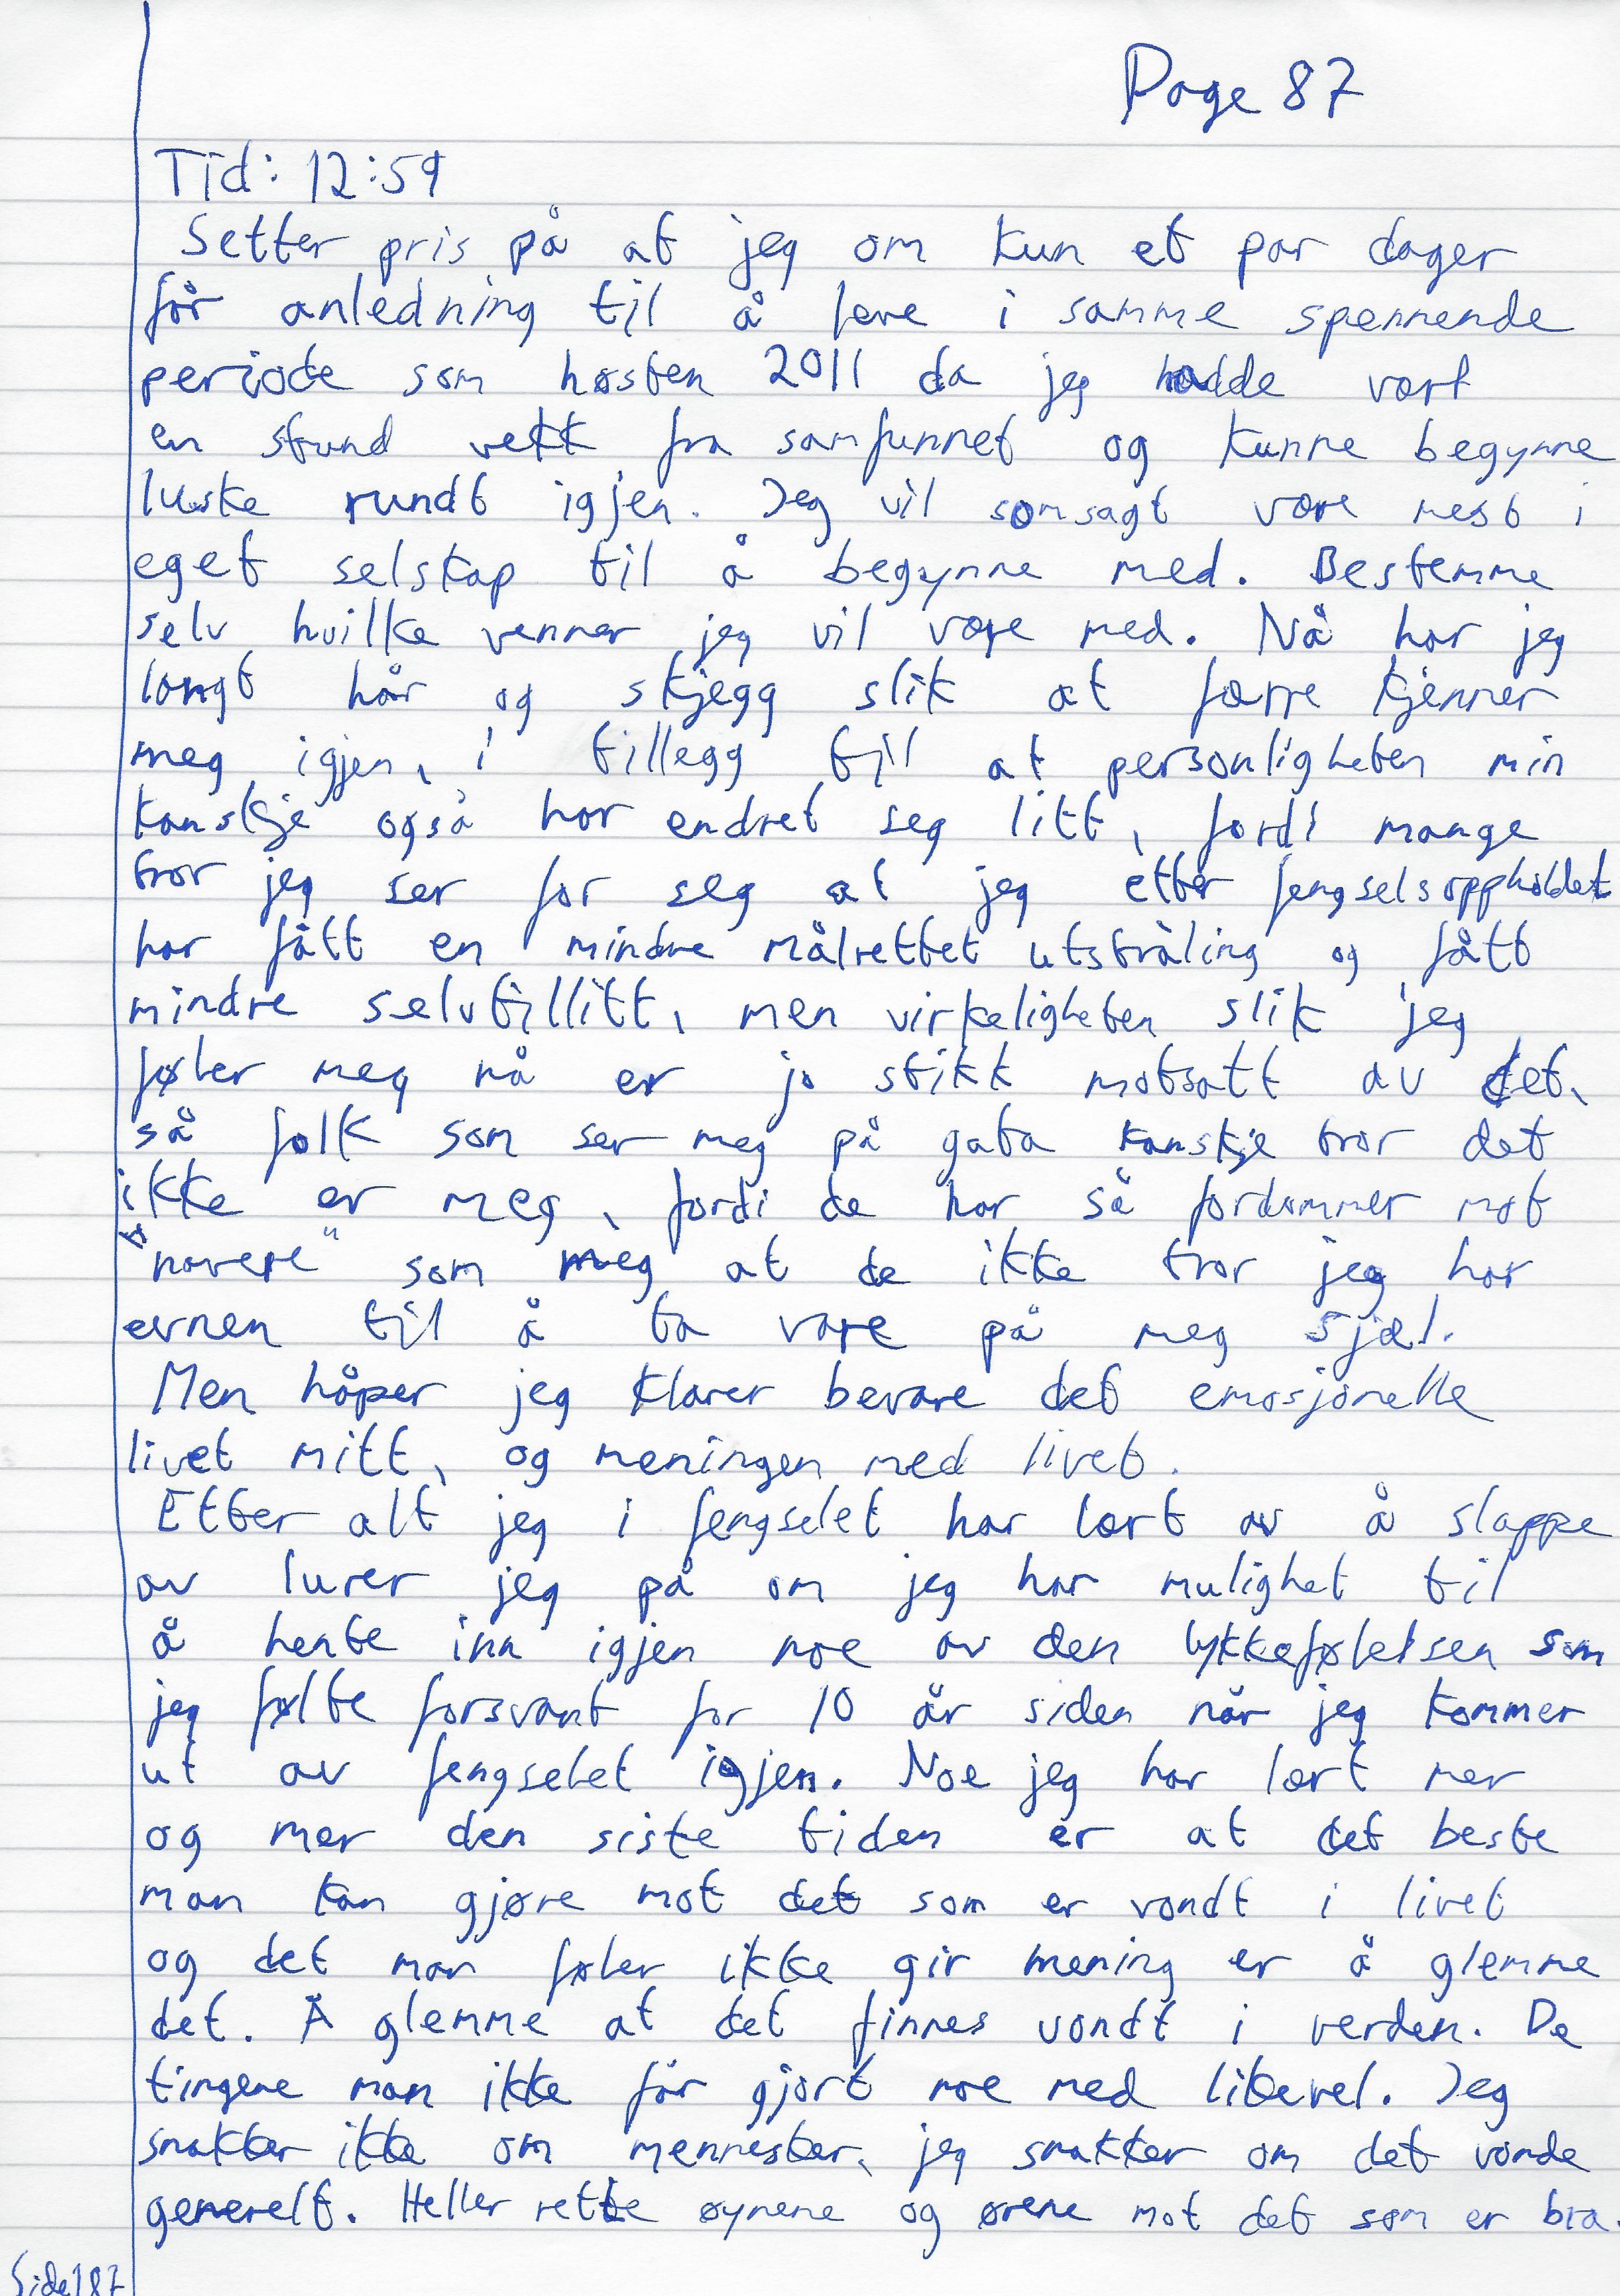 Page 87
Tid: 12:59
Setter pris på at jeg om kun et par dager
får anledning til å leve i samme spennende
periode som høsten 2011 da jeg hadde vært
en stund vekk fra samfunnet og kunne begynne
luske rundt igjen. Jeg vil somsagt være mest i
eget selskap til å begynne med. Bestemme
selv hvilke venner jeg vil være med. Nå har jeg
langt hår og skjegg slik at færre kjenner
meg igjen, i tillegg til at personligheten min
kanskje også har endret seg litt, fordi mange
tror jeg ser for seg at jeg etter fengselsoppholdet
har fått en mindre målrettet utstråling og fått
mindre selvtillitt, men virkeligheten slik jeg
føler meg nå er jo stikk motsatt av det,
så folk som ser meg på gata kanskje tror det
ikke er meg, fordi de har så fordommer mot
"navere" som meg at de ikke tror jeg har
evnen til å ta vare på meg sjæl.
Men håper jeg klarer bevare det emosjonelle
livet mitt, og meningen med livet.
Etter alt jeg i fengselet har lært av å slappe
av lurer jeg på om jeg har mulighet til
å hente inn igjen noe av den lykkefølelsen som
jeg følte forsvant for 10 år siden når jeg kommer
ut av fengselet igjen. Noe jeg har lært mer
og mer den siste tiden er at det beste
man kan gjøre mot det som er vondt i livet
og det man føler ikke gir mening er å glemme
det. Å glemme at det finnes vondt i verden. De
tingene man ikke får gjort noe med likevel. Jeg
snakker ikke om mennesker, jeg snakker om det vonde
generelt. Heller rette øynene og ørene mot det som er bra.
Side 187